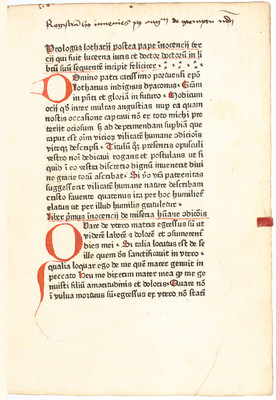 Prologus lotharii postea pape īnocencij ter
cij qui fuit lucerna iuris et doctor doctorū in li
brū suū sequentē incipit feliciter
Domino patri carissimo portuensi ep̄o
Lotharius indignus dyaconus Graciā
in pn̄ti et gloriā in futuro Modicum
ocij qd̛ inter multas angustias nup ea quam
nostis occasione captaui nō ex toto michi pre
terijt ociosum s̄ ad deprimendam supbiā que
caput est oīm vicioꝝ vilitatē humane ꝯdiciōis
vtcūqꝫ descripsi Titulū qꝫ presentis opusculi
vestro noī dedicaui rogans et postulans ut si
quid ī eo vestra discretio dignū inuenerit diui
ne gracie totū ascribat Si ỽo vrā paternitas
suggesserit vilicatē humane nature describam
cristo fauente quatenus ita per hoc humilief
elatus ut per illud humilis gratuletur
Liber pm̄us īnocencij de miseria hūane ꝯdiciōis
Quare de vtero matris egressus sū ut
viderē laborē ⁊ dolorē et ꝯsumerent̄
dies mei Si talia locutus est de se
ille quem ds̄ sanctificauit in vtero
qualia loquar ego de me quē mater genuit in
peccato Heu me dixerim mater mea qͥ me ge
nuisti filiū amaritudinis et doloris Quare nō
ī vulua mortuus sū egressus ex vtero nō stati